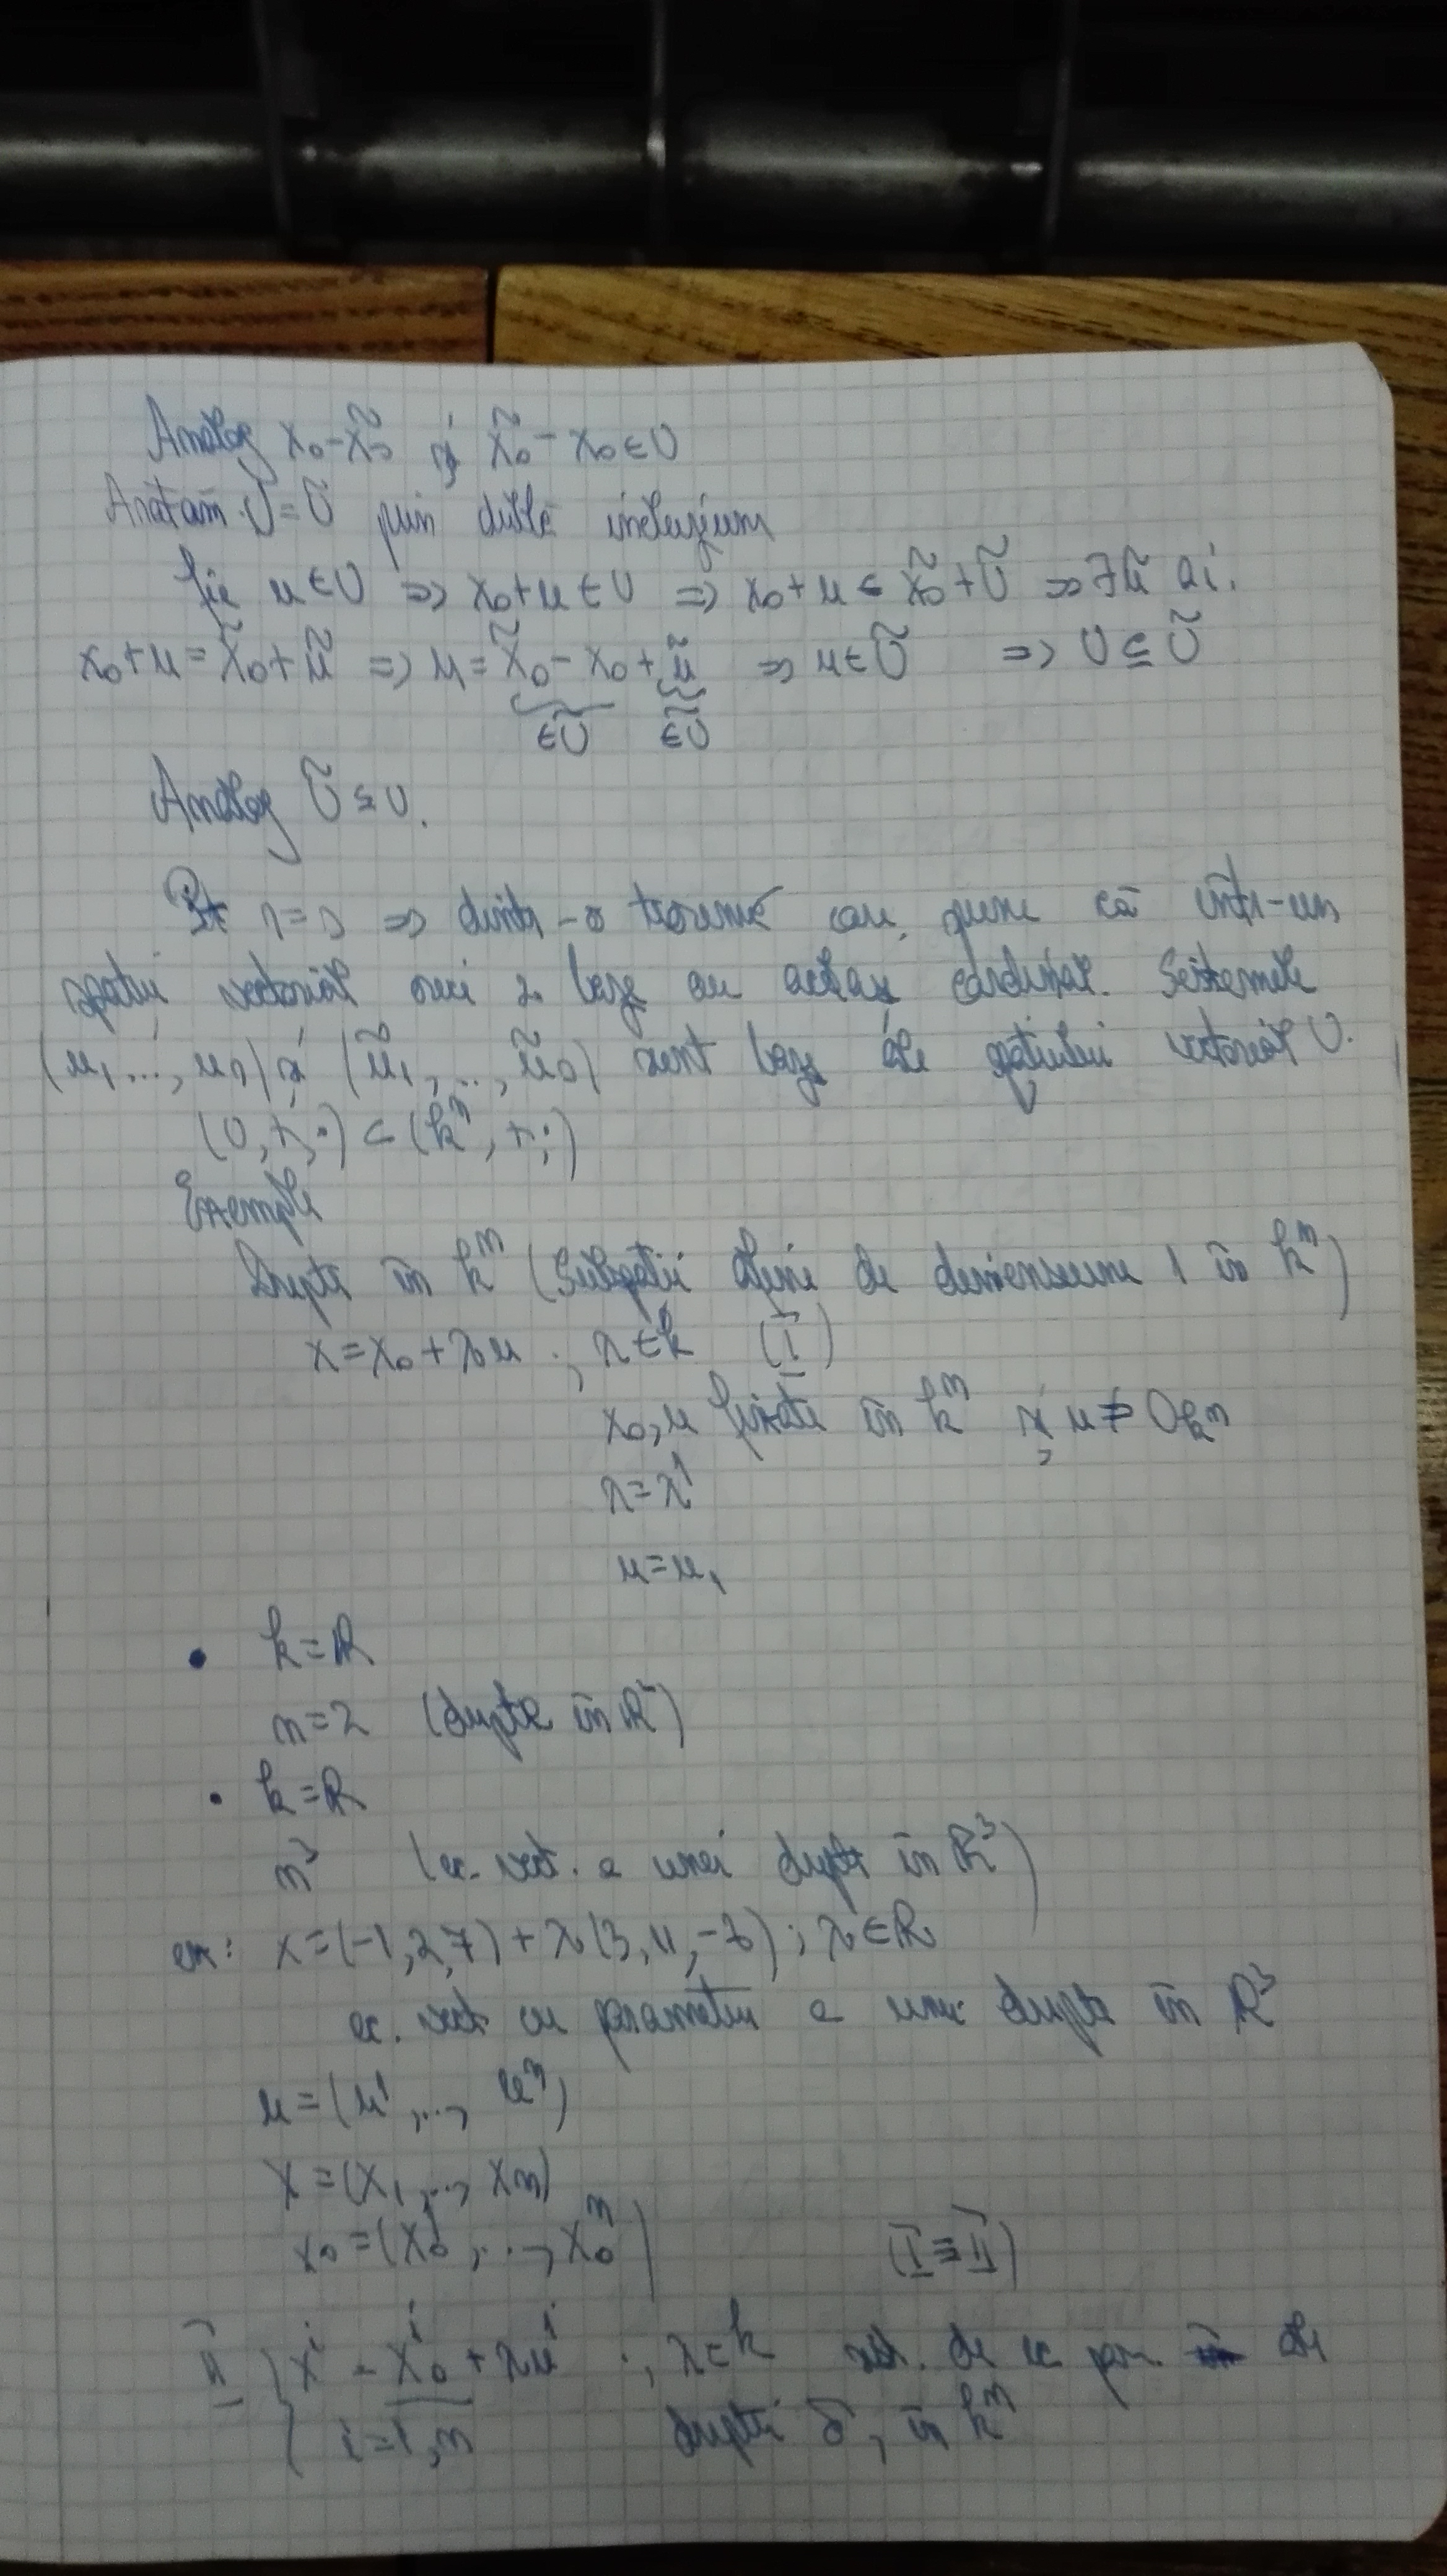 Analog x₀-x̃₀ și x̃₀ - x₀ ∈ U
Arătăm U = Ũ prin dublă incluziune
Fie u ∈ U => x₀+u ∈ U => x₀+u ∈ x̃₀+Ũ => ∃ũ ai.
x₀+u = x̃₀+ũ => u = x̃₀ - x₀ + ũ => u ∈ Ũ => U ⊆ Ũ
∈Ũ ∈Ũ
Analog Ũ ⊆ U.
Pt r=s => dintr-o teoremă care spune că într-un
spațiu vectorial orice 2 baze au același cardinal. Sistemele
(u₁, ..., uᵣ) și (ũ₁, ..., ũₛ) sunt baze ale spațiului vectorial U.
(U,+,·) ⊂ (kⁿ,+,·)
Exemple
Drepte în kⁿ (Subspații afine de dimensiune 1 în kⁿ)
x = x₀ + λu ; λ ∈ k (I)
x₀, u fixate în kⁿ și u ≠ 0kⁿ
λ = λ¹
u = u₁
• k = ℝ
n = 2 (drepte în ℝ²)
• k = ℝ
n³ (ec. vect. a unei drepte în ℝ³)
ex: x = (-1,2,7) + λ(3,11,-6) ; λ ∈ ℝ
ec. vect cu parametru a unei drepte în ℝ³
u = (u¹, ..., uⁿ)
x = (x₁, ..., xₙ)
x₀ = (x₀¹, ..., x₀ⁿ) (I ≡ II)
II { xⁱ = x₀ⁱ + λuⁱ ; λ ∈ k sist. de ec par. ale
i = 1,n dreptei δ, în kⁿ